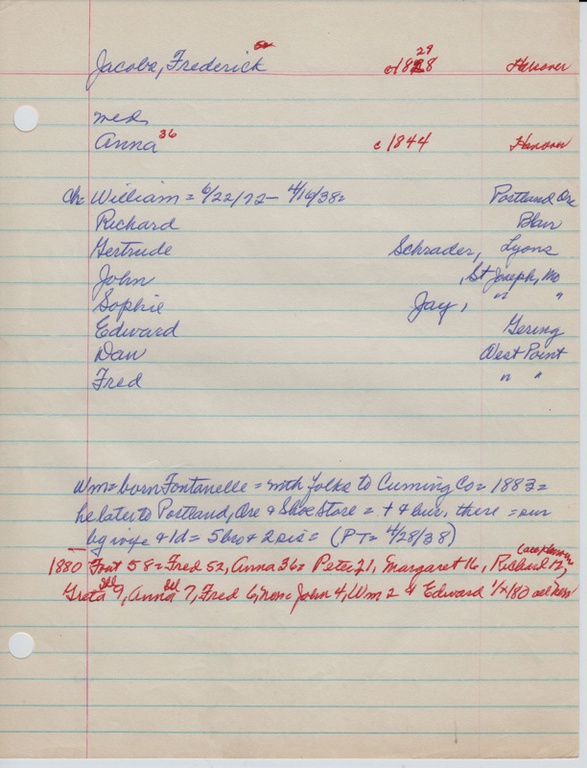 Jacobs, Frederick 52 c1828 29 Hanover
med
Anna 36 c 1844 Hanover
Ch William = 6/22/72 - 4/16/38 = Portland Ore
Richard Blair
Gertrude Schrader, Lyons
John , St Joseph, Mo
Sophie Jay, " "
Edward Gering
Dan West Point
Fred " "
Wm = born Fontanelle = with folks to Cuming Co = 1883 =
he later to Portland, Ore & Shoe Store = + & bur. there = sur
by wife & 1d = 5 bro & 2 sis = (PT = 4/28/38)
1880 Font 58 = Fred 52, Anna 36 = Peter 21, Margaret 16, Richard 12,
Greta 9, Anna 7, Fred 6, John 4, Wm 2 & Edward